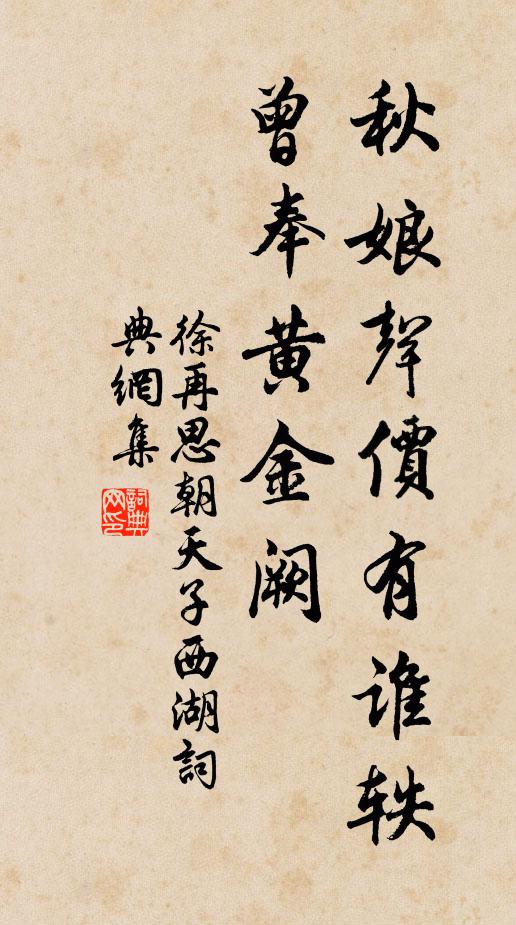 秋娘聲價有誰軼
曾奉黃金闕
徐再思朝天子西湖詞
典網集
詞典網印